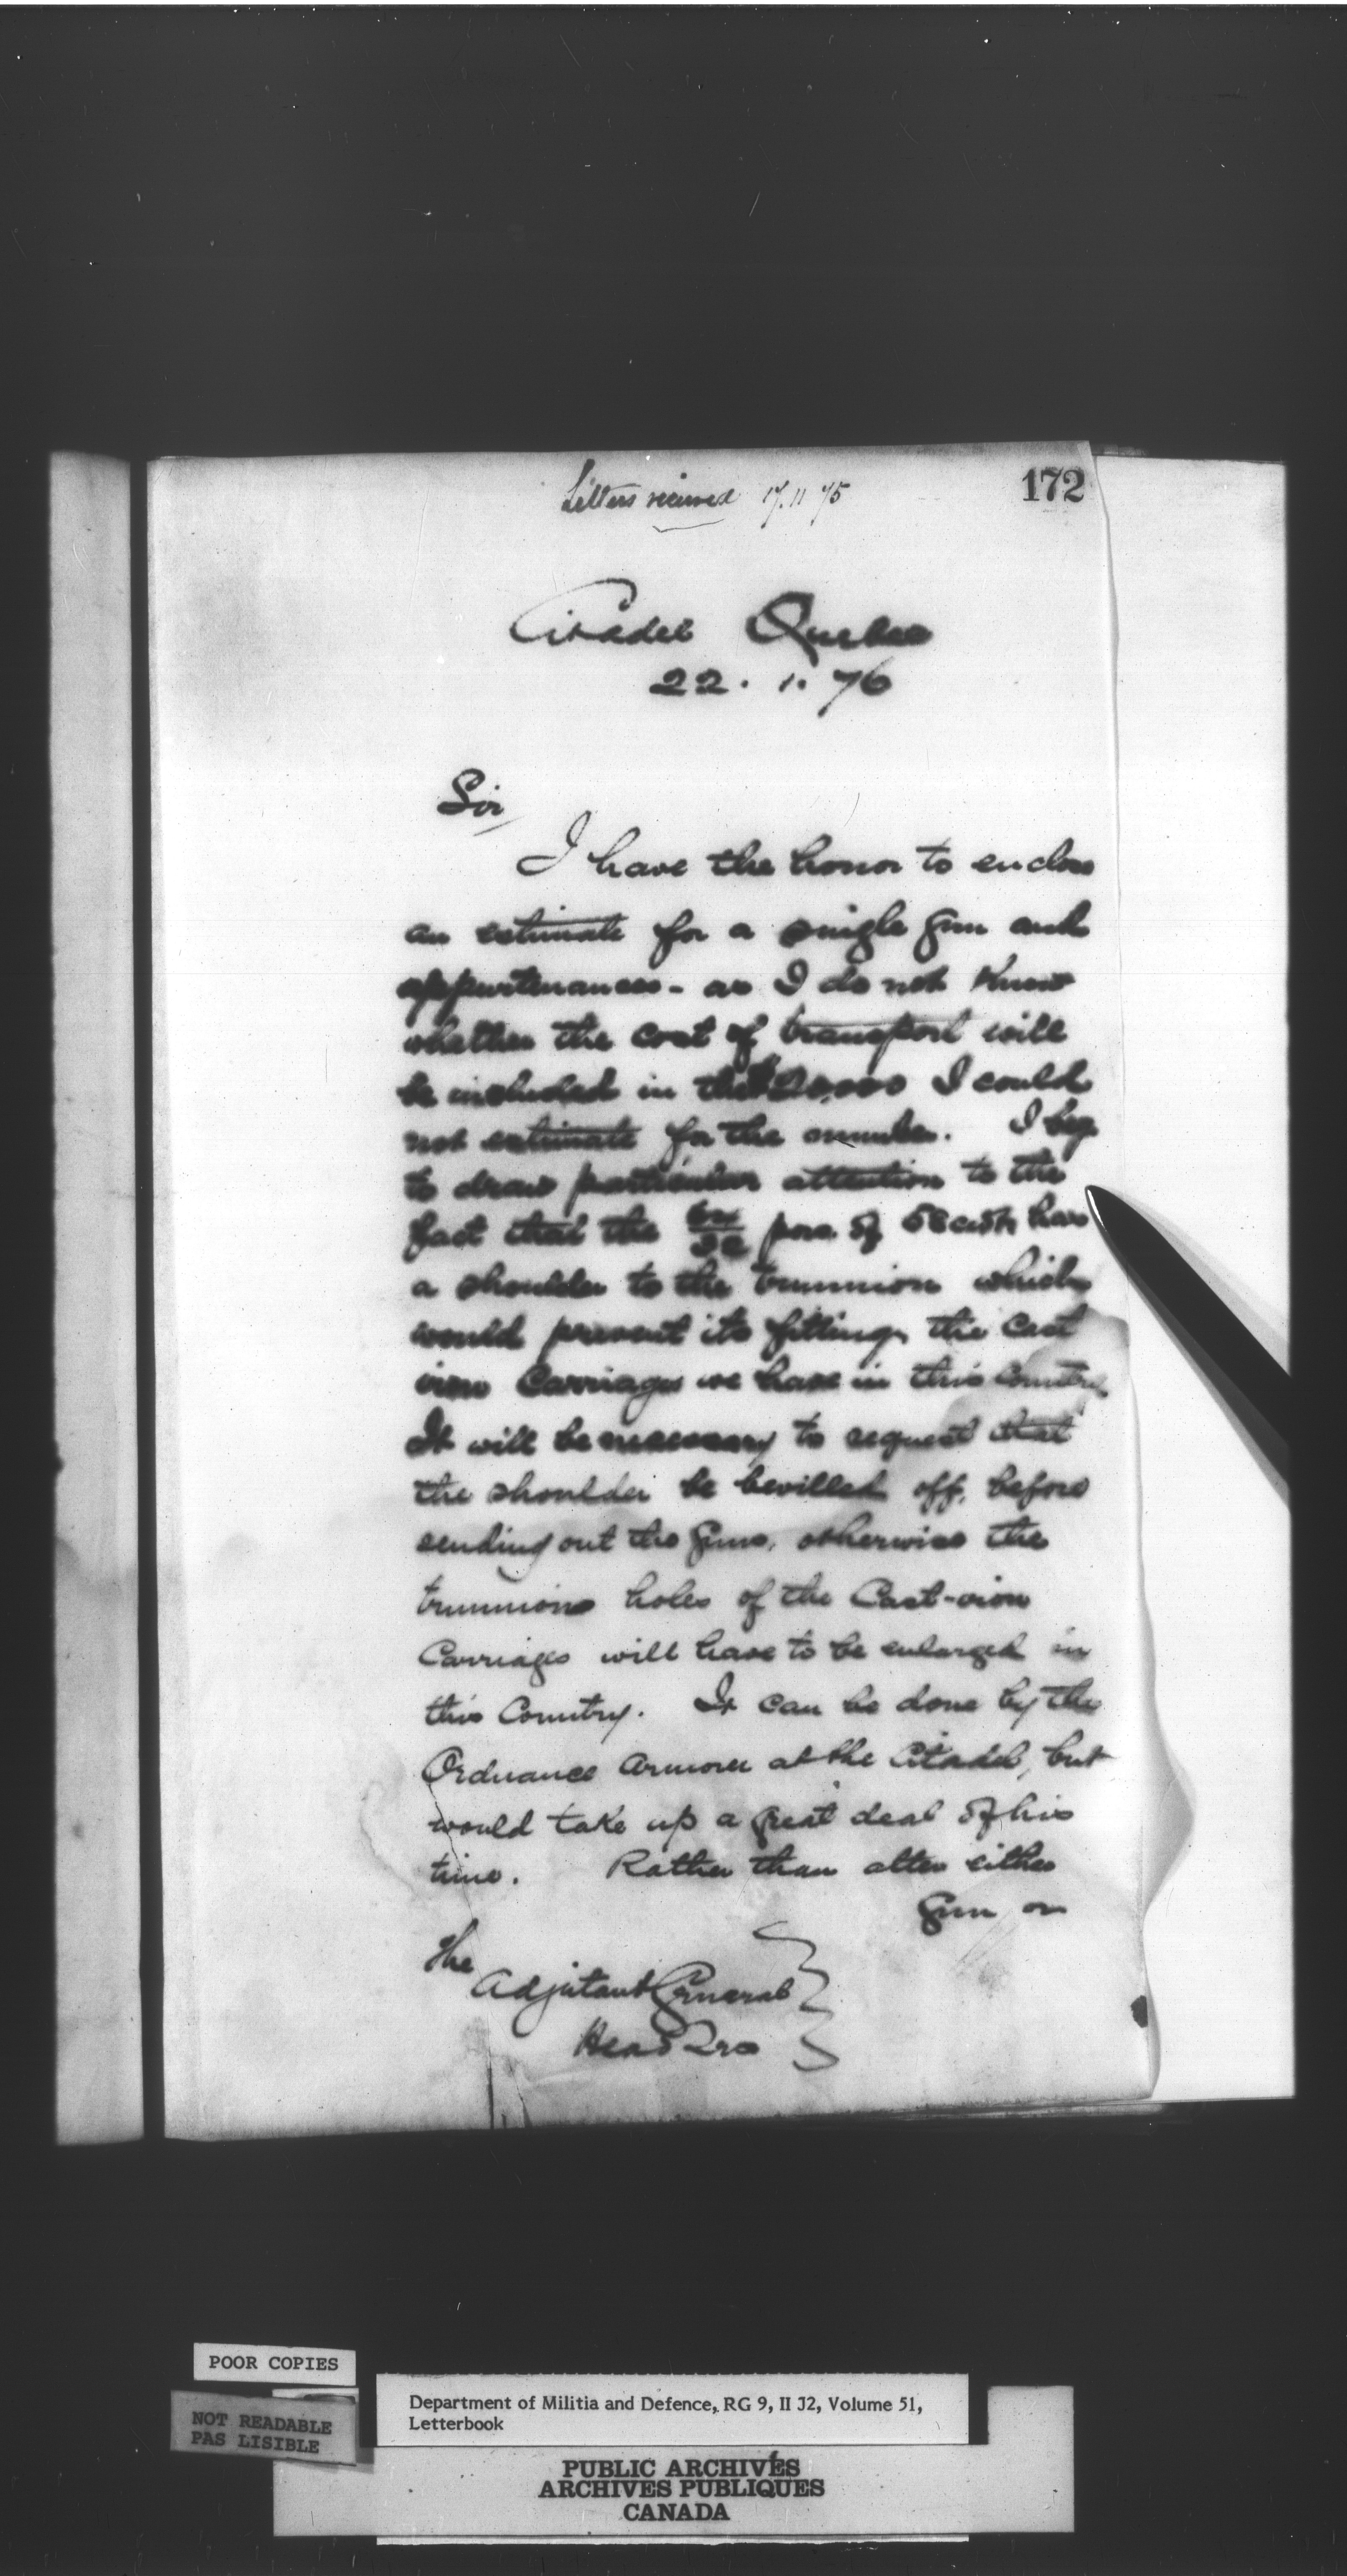 Letters received 17.11 75
172
Citadel Quebec
22. 1. 76
Sir
I have the honor to enclose
an estimate for a single gun and
appurtenances - as I do not know
whether the cost of transport will
be included in the $20,000 I could
not estimate for the number. I beg
to draw particular attention to the
fact that the 64/32 pors. of 58 cwt has
a shoulder to the trunnion which
would prevent its fitting the cast
iron Carriages we have in this Country
It will be necessary to request that
the shoulder be bevilled off, before
sending out the guns, otherwise the
trunnions holes of the Cast-iron
Carriages will have to be enlarged in
this Country. It can be done by the
Ordnance Armorer at the Citadel, but
would take up a great deal of his
time. Rather than alter either
gun or
The
Adjutant General
Head Qrs
POOR COPIES
NOT READABLE
PAS LISIBLE
Department of Militia and Defence, RG 9, II J2, Volume 51,
Letterbook
PUBLIC ARCHIVES
ARCHIVES PUBLIQUES
CANADA